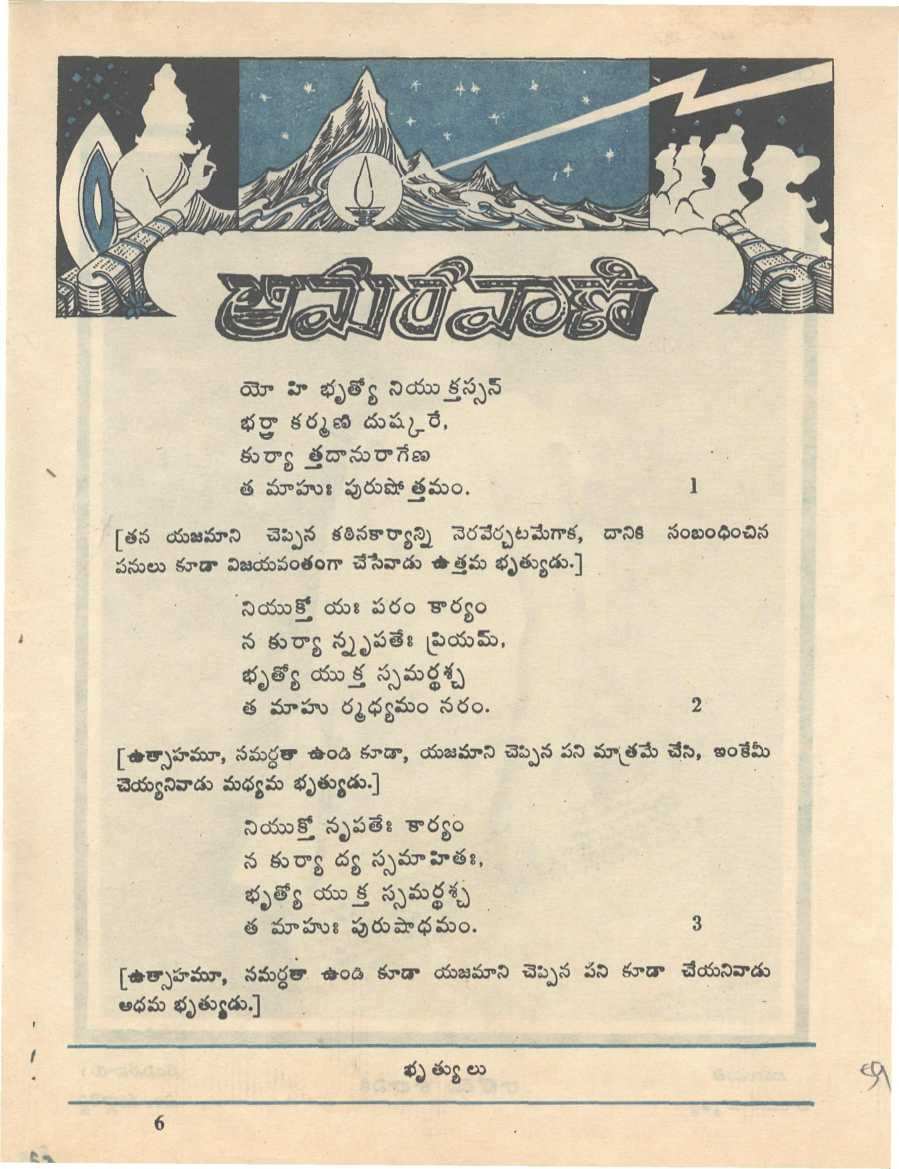 అమరవాణి
యో హి భృత్యో నియు క్తస్సన్
భర్త్రా కర్మణి దుష్కరే,
కుర్యా త్తదానురాగేణ
త మాహుః పురుషోత్తమం. 1
[తన యజమాని చెప్పిన కఠినకార్యాన్ని నెరవేర్చటమేగాక, దానికి సంబంధించిన
పనులు కూడా విజయవంతంగా చేసేవాడు ఉత్తమ భృత్యుడు.]
నియుక్తో యః పరం కార్యం
న కుర్యా న్నృపతేః ప్రియమ్,
భృత్యో యు క్త స్సమర్థశ్చ
త మాహు ర్మధ్యమం నరం. 2
[ఉత్సాహమూ, సమర్ధతా ఉండి కూడా, యజమాని చెప్పిన పని మాత్రమే చేసి, ఇంకేమీ
చెయ్యనివాడు మధ్యమ భృత్యుడు.]
నియుక్తో నృపతేః కార్యం
న కుర్యా ద్య స్సమాహితః,
భృత్యో యు క్త స్సమర్థశ్చ
త మాహుః పురుషాధమం. 3
[ఉత్సాహమూ, సమర్ధతా ఉండి కూడా యజమాని చెప్పిన పని కూడా చేయనివాడు
అధమ భృత్యుడు.]
భృత్యులు
6